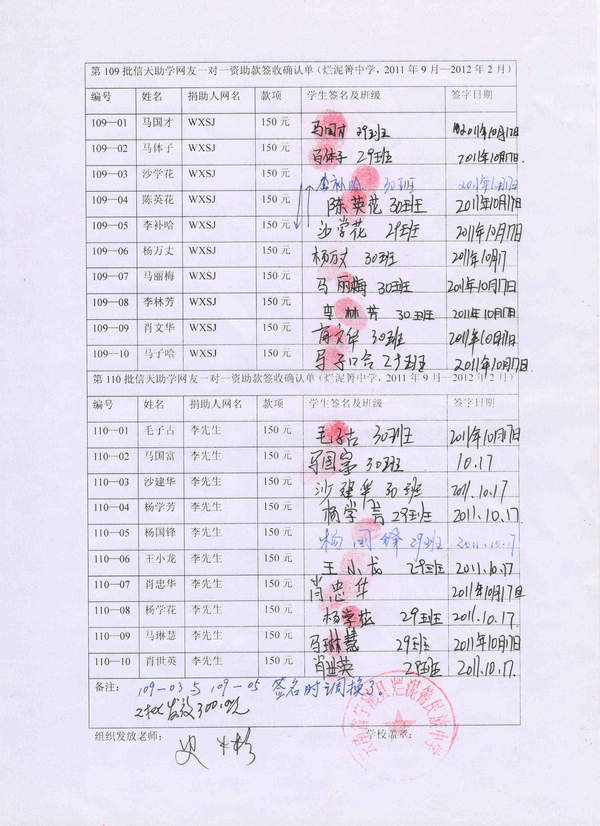 第109批信天助学网友一对一资助款签收确认单(烂泥箐中学，2011年9月—2012年2月)
编号 姓名 捐助人网名 款项 学生签名及班级 签字日期
109—01 马国才 WXSJ 150元 马国才 29班 2011年10月17日
109—02 马体子 WXSJ 150元 马体子 29班 2011年10月17日
109—03 沙学花 WXSJ 150元 李补哈 30班 2011年10月17日
109—04 陈英花 WXSJ 150元 陈英花 30班 2011年10月17日
109—05 李补哈 WXSJ 150元 沙学花 29班 2011年10月17日
109—06 杨万丈 WXSJ 150元 杨万丈 30班 2011年10月17
109—07 马丽梅 WXSJ 150元 马丽梅 30班 2011年10月17日
109—08 李林芳 WXSJ 150元 李林芳 30班 2011年10月17日
109—09 肖文华 WXSJ 150元 肖文华 30班 2011年10月17日
109—10 马子哈 WXSJ 150元 马子哈 29班 2011年10月17日
第110批信天助学网友一对一资助款签收确认单(烂泥箐中学，2011年9月—2012年2月)
编号 姓名 捐助人网名 款项 学生签名及班级 签字日期
110—01 毛子古 李先生 150元 毛子古 30班 2011年10月17日
110—02 马国富 李先生 150元 马国富 30班 10.17
110—03 沙建华 李先生 150元 沙建华 30班 2011.10.17
110—04 杨学芳 李先生 150元 杨学芳 29班 2011.10.17
110—05 杨国锋 李先生 150元 杨国锋 29班 2011.10.17
110—06 王小龙 李先生 150元 王小龙 29班 2011.10.17
110—07 肖忠华 李先生 150元 肖忠华 2011年10月17日
110—08 杨学花 李先生 150元 杨学花 29班 2011.10.17
110—09 马琳慧 李先生 150元 马琳慧 29班 2011年10月17日
110—10 肖世英 李先生 150元 肖世英 29班 2011.10.17.
备注: 109-03与109-05签名时调换了。
2批发放3000元
组织发放老师: 学校盖章: